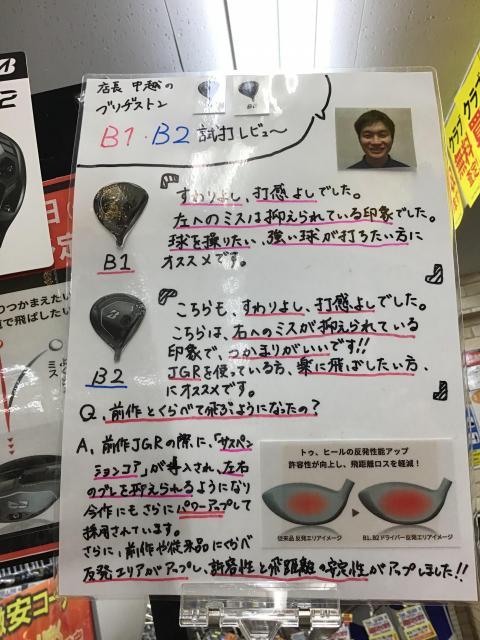 店長 甲越の
ブリヂストン
B1・B2 試打レビュ〜
『すわりよし、打感よしでした。
左へのミスは抑えられている印象でした。
球を操りたい、強い球が打ちたい方に
オススメです。』
B1
『こちらも、すわりよし、打感よしでした。
こちらは、右へのミスが抑えられている
印象で、つかまりがいいです!!
JGRを使っている方、楽に飛ばしたい方、
にオススメです。』
B2
Q. 前作とくらべて飛ぶようになったの?
A. 前作JGRの際に、「サスペン
ションコア」が導入され、左右
のブレを抑えられるようになり
今作にもさらにパワーアップして
採用されています。
さらに、前作や従来品にくらべ
反発エリアがアップし、許容性と飛距離の安定性がアップしました!!
トゥ、ヒールの反発性能アップ
許容性が向上し、飛距離ロスを軽減!
従来品 反発エリアイメージ
B1、B2ドライバー反発エリアイメージ
つかまえたい
で飛ばしたい
ミス
激安コー
クラブ
無料